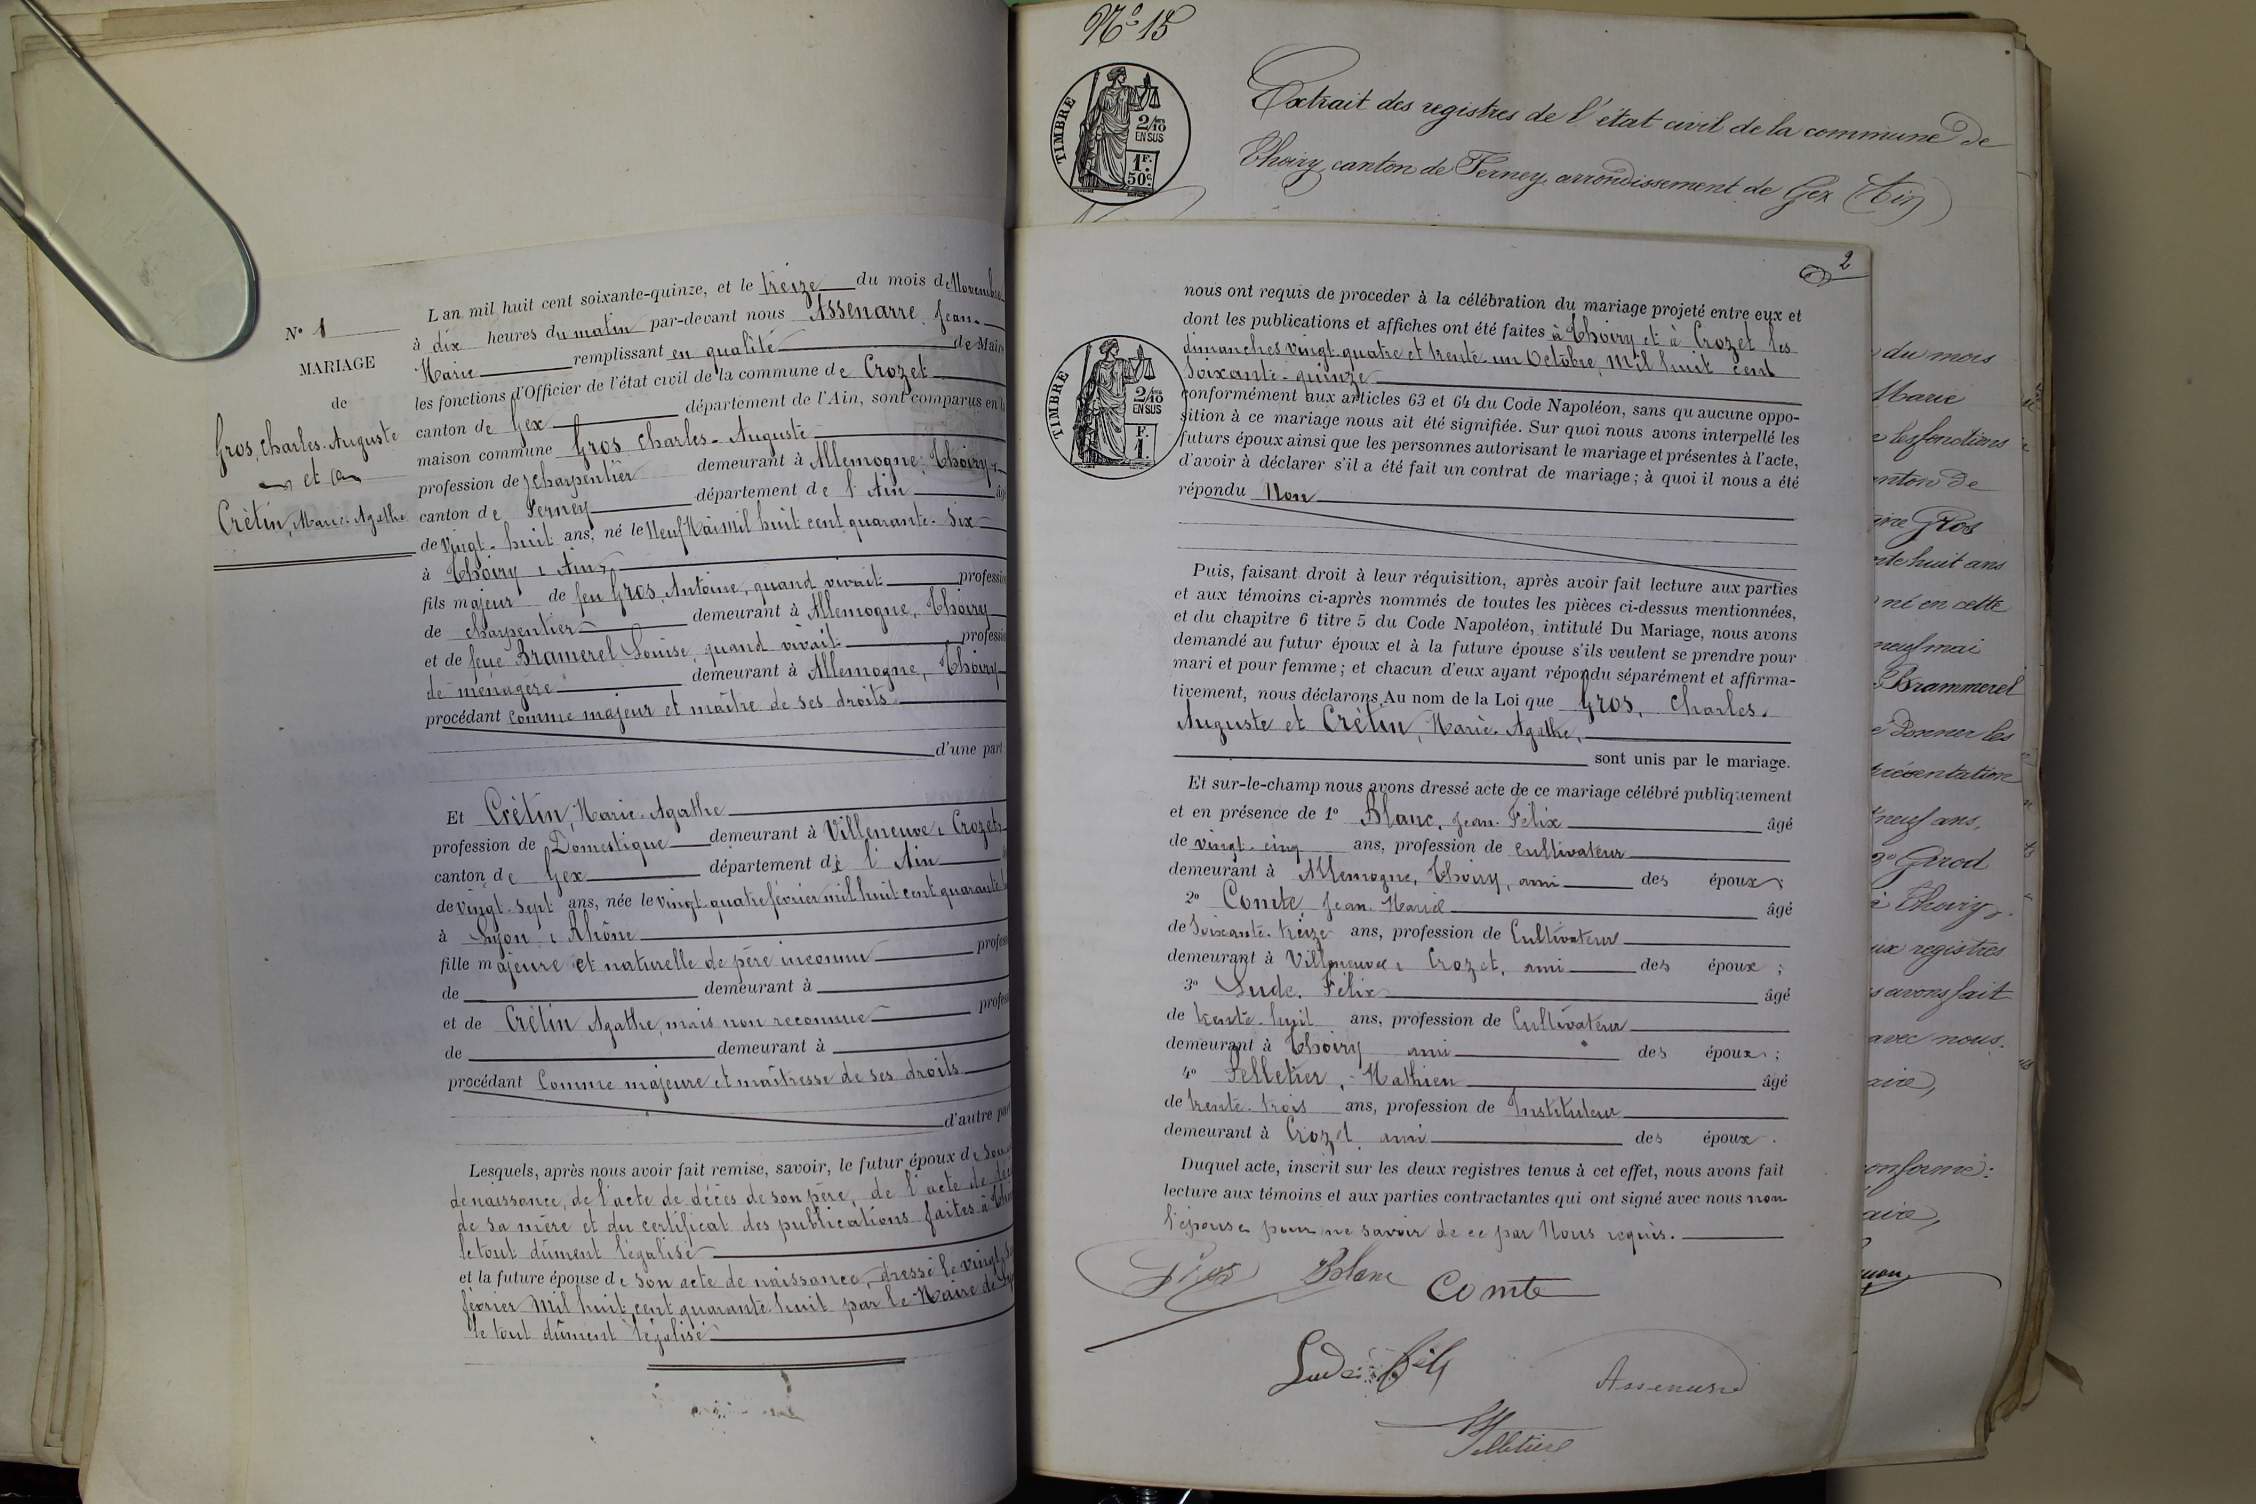 N° 1
MARIAGE
de
Gros, Charles-Auguste
et
Crétin, Marie-Agathe
L'an mil huit cent soixante-quinze, et le treize du mois de Novembre
à dix heures du matin par-devant nous Assenarre, Jean-
Marie remplissant en qualité de Maire
les fonctions d'Officier de l'état civil de la commune de Crozet
canton de Gex département de l'Ain, sont comparus en la
maison commune Gros Charles-Auguste
profession de charpentier demeurant à Allemogne, Thoiry
canton de Ferney département de l'Ain âgé
de vingt-huit ans, né le Neuf Mai mil huit cent quarante-six
à Thoiry (Ain)
fils majeur de feu Gros, Antoine, quand vivait profession
de charpentier demeurant à Allemogne, Thoiry
et de feue Bramerel Louise quand vivait profession
de ménagère demeurant à Allemogne, Thoiry
procédant comme majeur et maître de ses droits
d'une part
Et Crétin, Marie-Agathe
profession de Domestique demeurant à Villeneuve, Crozet
canton de Gex département de l'Ain
de vingt-sept ans, née le vingt-quatre février mil huit cent quarante
à Lyon (Rhône
fille majeure et naturelle de père inconnu profess
de demeurant à
et de Crétin Agathe, mais non reconnue profess
de demeurant à
procédant Comme majeure et maîtresse de ses droits
d'autre part
Lesquels, après nous avoir fait remise, savoir, le futur époux de son
de naissance, de l'acte de décès de son père, de l'acte de
de sa mère et du certificat des publications faites à
le tout dûment légalisé
et la future épouse de son acte de naissance, dressé le vingt
février Mil huit cent quarante huit par le Maire de
le tout dûment légalisé
N° 15
TIMBRE
2/10
EN SUS
1F.
50c.
Extrait des registres de l'état civil de la commune de
Thoiry canton de Ferney arrondissement de Gex (Ain)
2
TIMBRE
2/10
EN SUS
F.
1.
nous ont requis de proceder à la célébration du mariage projeté entre eux et
dont les publications et affiches ont été faites à Thoiry et à Crozet les
dimanches vingt-quatre et trente-un Octobre, Mil huit cent
soixante-quinze
conformément aux articles 63 et 64 du Code Napoléon, sans qu'aucune oppo-
sition à ce mariage nous ait été signifiée. Sur quoi nous avons interpellé les
futurs époux ainsi que les personnes autorisant le mariage et présentes à l'acte,
d'avoir à déclarer s'il a été fait un contrat de mariage; à quoi il nous a été
répondu Non
Puis, faisant droit à leur réquisition, après avoir fait lecture aux parties
et aux témoins ci-après nommés de toutes les pièces ci-dessus mentionnées,
et du chapitre 6 titre 5 du Code Napoléon, intitulé Du Mariage, nous avons
demandé au futur époux et à la future épouse s'ils veulent se prendre pour
mari et pour femme; et chacun d'eux ayant répondu séparément et affirma-
tivement, nous déclarons Au nom de la Loi que Gros, Charles-
Auguste et Crétin, Marie-Agathe,
sont unis par le mariage.
Et sur-le-champ nous avons dressé acte de ce mariage célébré publiquement
et en présence de 1° Blanc, Jean-Félix âgé
de vingt-cinq ans, profession de cultivateur
demeurant à Allemogne, Thoiry, ami des époux;
2° Comte, Jean-Marie âgé
de soixante-treize ans, profession de Cultivateur
demeurant à Villeneuve, Crozet, ami des époux;
3° Lude, Félix âgé
de trente-huit ans, profession de Cultivateur
demeurant à Thoiry ami des époux;
4° Pelletier, Mathieu âgé
de trente-trois ans, profession de Instituteur
demeurant à Crozet ami des époux.
Duquel acte, inscrit sur les deux registres tenus à cet effet, nous avons fait
lecture aux témoins et aux parties contractantes qui ont signé avec nous non
l'épouse pour ne savoir de ce par Nous requis.
Gros Blanc Comte
Lude Félix
Assenarre
Pelletier
du mois
Marie
les fonctions
canton de
Gros
huit ans
né en cette
neuf mai
Brammerel
Donner les
présentation
neuf ans,
3° Girod
à Thoiry
aux registres
avons fait
avec nous.
aire,
conforme:
aire,